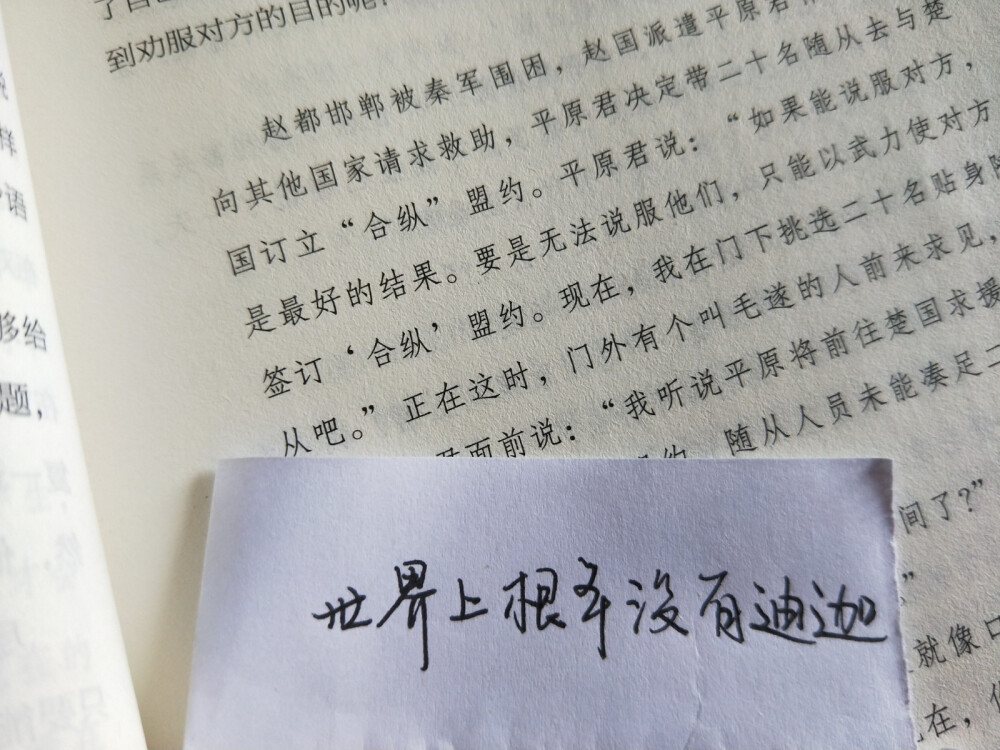 到劝服对方的目的呢？
赵都邯郸被秦军围困，赵国派遣平原君
向其他国家请求救助，平原君决定带二十名随从去与楚
国订立“合纵”盟约。平原君说：“如果能说服对方，
是最好的结果。要是无法说服他们，只能以武力使对方
签订‘合纵’盟约。现在，我在门下挑选二十名贴身随
从吧。”正在这时，门外有个叫毛遂的人前来求见，
面前说：“我听说平原将前往楚国求援
随从人员未能凑足二
间了？”
”
就像
在，
够给
题，
语
样
世界上根本没有迪迦